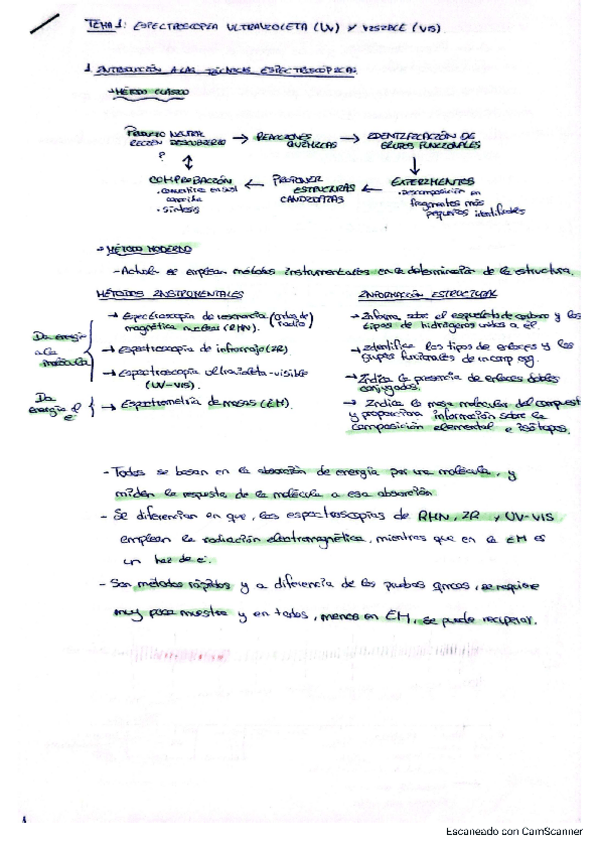 TEMA 1: ESPECTROSCOPIA ULTRAVIOLETA (UV) Y VISIBLE (VIS)
1. INTRODUCCIÓN A LAS TÉCNICAS ESPECTROSCÓPICAS
→ MÉTODO CLÁSICO
PRODUCTO NATURAL RECIÉN DESCUBIERTO ? → REACCIONES QUÍMICAS → IDENTIFICACIÓN DE GRUPOS FUNCIONALES
COMPROBACIÓN ← PROPONER ESTRUCTURAS CANDIDATAS ← EXPERIMENTOS
· síntesis
· Descomposición en
fragmentos más
pequeños identificables
→ MÉTODO MODERNO
- Actual. se emplean métodos instrumentales en la determinación de la estructura.
MÉTODOS INSTRUMENTALES
Da energía
a la
molécula
→ Espectroscopía de resonancia (ondas de radio)
magnética nuclear (RMN).
→ Espectroscopía de infrarrojo (IR)
→ Espectroscopía ultravioleta-visible
(UV-VIS).
Da
energía
→ Espectrometría de masas (EM).
INFORMACIÓN ESTRUCTURAL
→ Informa sobre el esqueleto de carbono y los
tipos de hidrógenos unidos a él.
→ Identifica los tipos de enlaces y los
grupos funcionales de
→ Indica la presencia de enlaces dobles
conjugados.
→ Indica la masa molecular del compuesto
y proporciona información sobre la
composición elemental e isótopos.
- Todos se basan en la absorción de energía por una molécula, y
miden la respuesta de la molécula a esa absorción
- Se diferencian en que, las espectroscopias de RMN, IR y UV-VIS
emplean la radiación electromagnética, mientras que en la EM es
un haz de e⁻.
- Son métodos rápidos y a diferencia de las pruebas qmcas, se requiere
muy poca muestra y en todos, menos en EM, se puede recuperar.
Escaneado con CamScanner